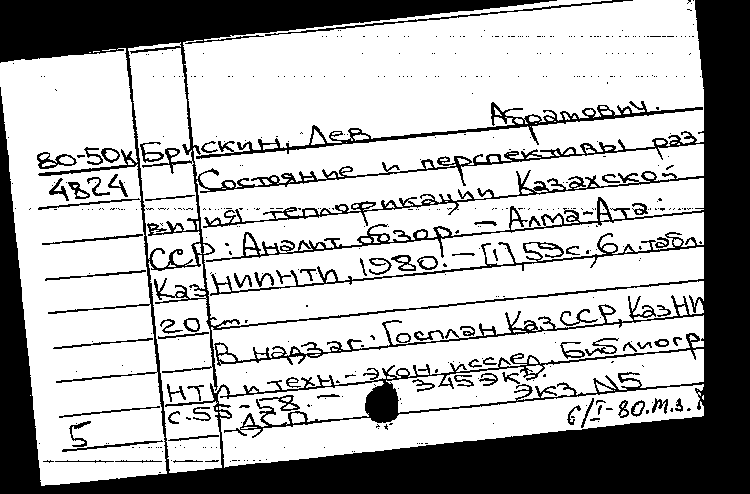 80-50к Брискин, Лев Абрамович.
4824 Состояние и перспективы раз-
вития теплофикации Казахской
ССР: Аналит. обзор. – Алма-Ата:
КазНИИНТИ, 1980. – [1], 59 с., 6 л. табл.
20 см.
В надзаг.: Госплан КазССР, КазНИ
НТИ и техн.-экон. исслед. Библиогр.
с. 55-58. – 345 экз.
ДСП. Экз. N5
5 6/I-80.м.з.